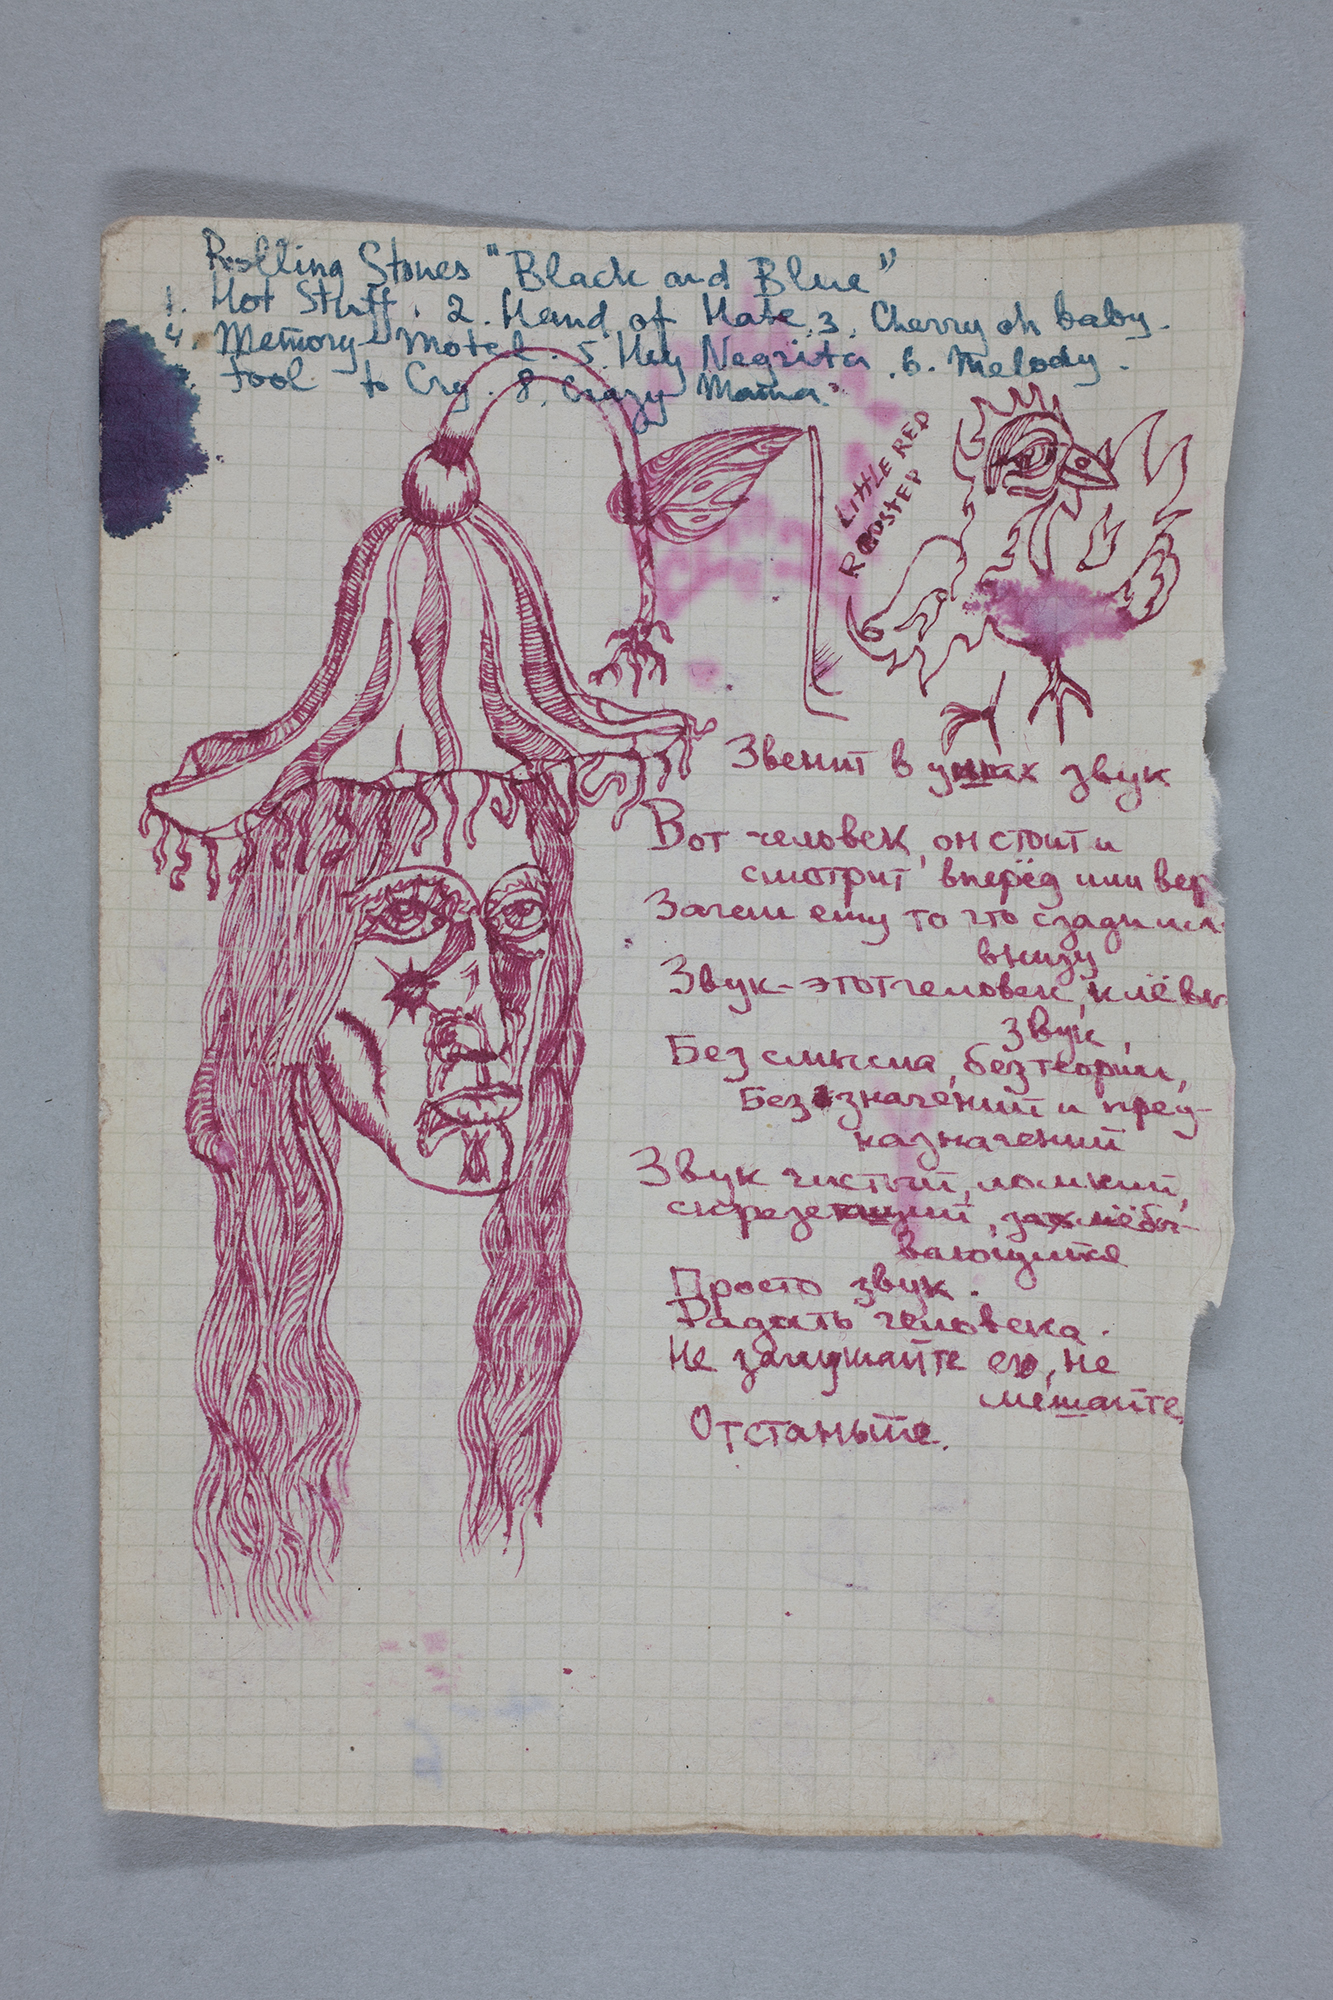 Rolling Stones "Black and Blue"
1. Hot Stuff. 2. Hand of Hate, 3. Cherry oh baby.
4. Memory Motel. 5. Hey Negrita. 6. Melody.
Fool to Cry. 8. Crazy Mama.
LITTLE RED
ROOSTER
Звенит в ушах звук
Вот человек, он стоит и
смотрит вперёд или вер
Зачем ему то что сзади или
внизу
Звук-этот человек,
звук,
Без смысла, без теории,
Без значений и пред-
назначений
Звук чистый, ломкий,
захлёбы-
вающийся
Просто звук.
Радость человека.
Не заглушайте его, не
мешайте
Отстаньте.